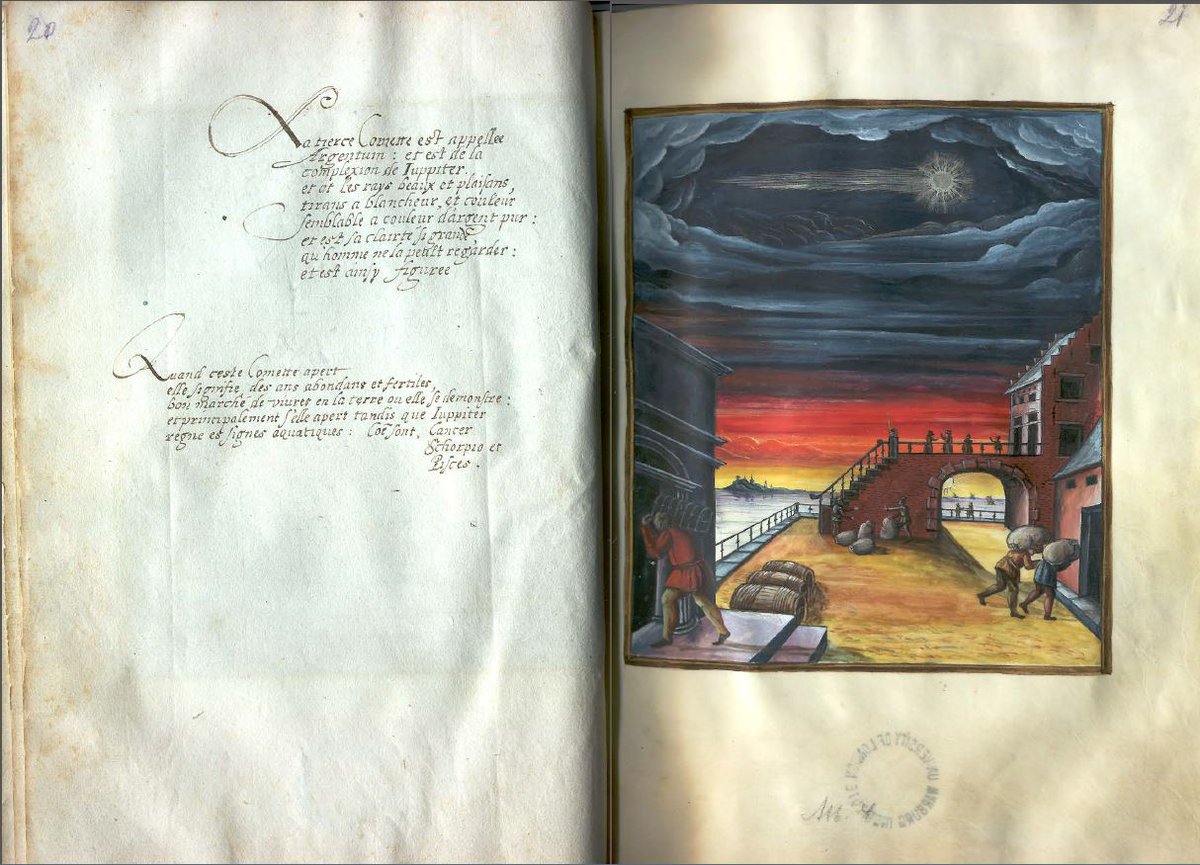 20
La tierce Comette est appellee
Argentum : et est de la
complexion de Iuppiter.
et ot les rays beaux et plaisans,
tirans a blancheur, et couleur
semblable a couleur d'argent pur :
et est sa clairte si grand,
qu'homme ne la peult regarder :
et est ainsy figuree
Quand ceste Comette apert
elle signifie, des ans abondans et fertiles,
bon marché de vivres en la terre ou elle se demonstre :
et principalement s'elle apert tandis que Iuppiter
regne es signes aquatiques : Coe sont, Cancer
Schorpio et
Pisces .
21
UNIVERSITY OF LONDON
WARBURG INSTITUTE